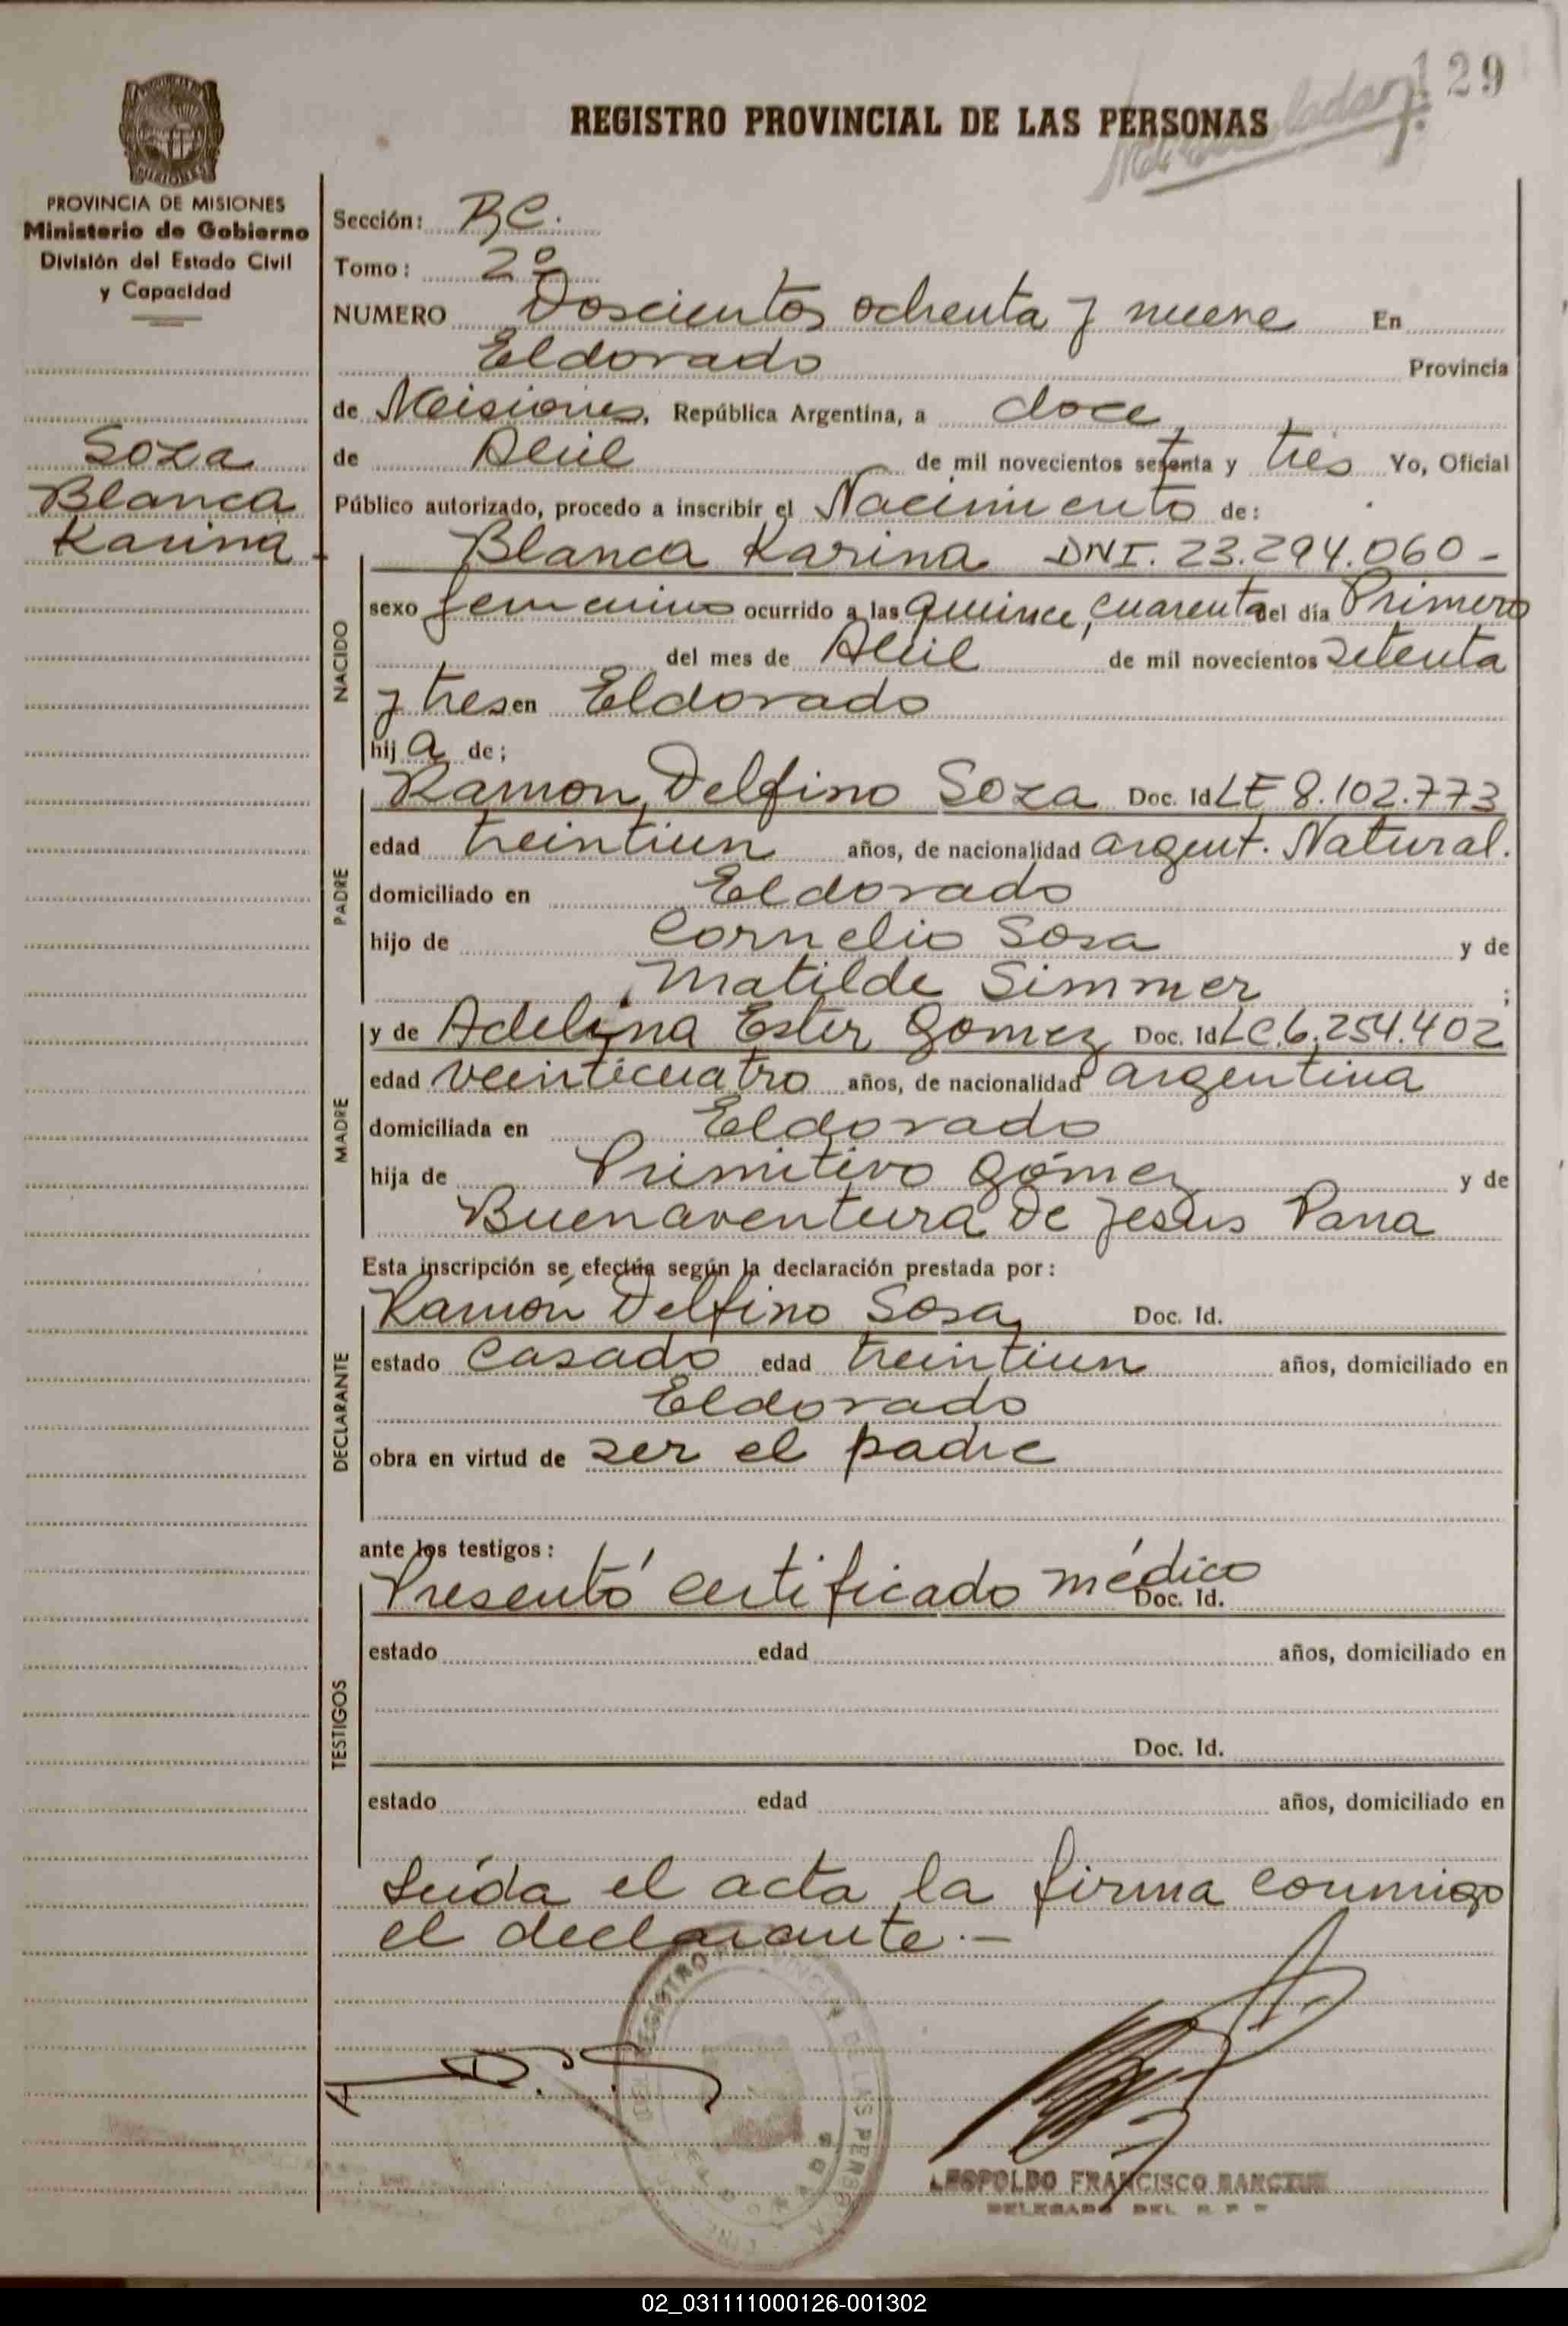 129
REGISTRO PROVINCIAL DE LAS PERSONAS
PROVINCIA DE MISIONES
Ministerio de Gobierno
División del Estado Civil
y Capacidad
Soza
Blanca
Karina
Sección:
Tomo: 2º
NUMERO Doscientos ochenta y nueve En
Eldorado Provincia
de Misiones, República Argentina, a doce
de Abril de mil novecientos setenta y tres Yo, Oficial
Público autorizado, procedo a inscribir el Nacimiento de:
Blanca Karina DNI. 23.294.060 -
NACIDO
sexo femenino ocurrido a las quince, cuarenta del día Primero
del mes de Abril de mil novecientos setenta
y tres en Eldorado
hija de;
PADRE
Ramon Delfino Soza Doc. Id LE 8.102.773
edad treintiun años, de nacionalidad argent. Natural.
domiciliado en Eldorado
hijo de Cornelio Sosa y de
Matilde Simmer ;
MADRE
y de Adelina Ester Gomez Doc. Id LC.6.254.402
edad veinticuatro años, de nacionalidad argentina
domiciliada en Eldorado
hija de Primitivo Gómez y de
Buenaventura De Jesús Parra
Esta inscripción se efectúa según la declaración prestada por:
DECLARANTE
Ramón Delfino Sosa Doc. Id.
estado casado edad treintiun años, domiciliado en
Eldorado
obra en virtud de ser el padre
ante los testigos:
TESTIGOS
Presentó certificado médico Doc. Id.
estado edad años, domiciliado en
Doc. Id.
estado edad años, domiciliado en
Leída el acta la firma conmigo
el declarante.-
LEOPOLDO FRANCISCO
DELEGADO DEL R P P
02_031111000126-001302